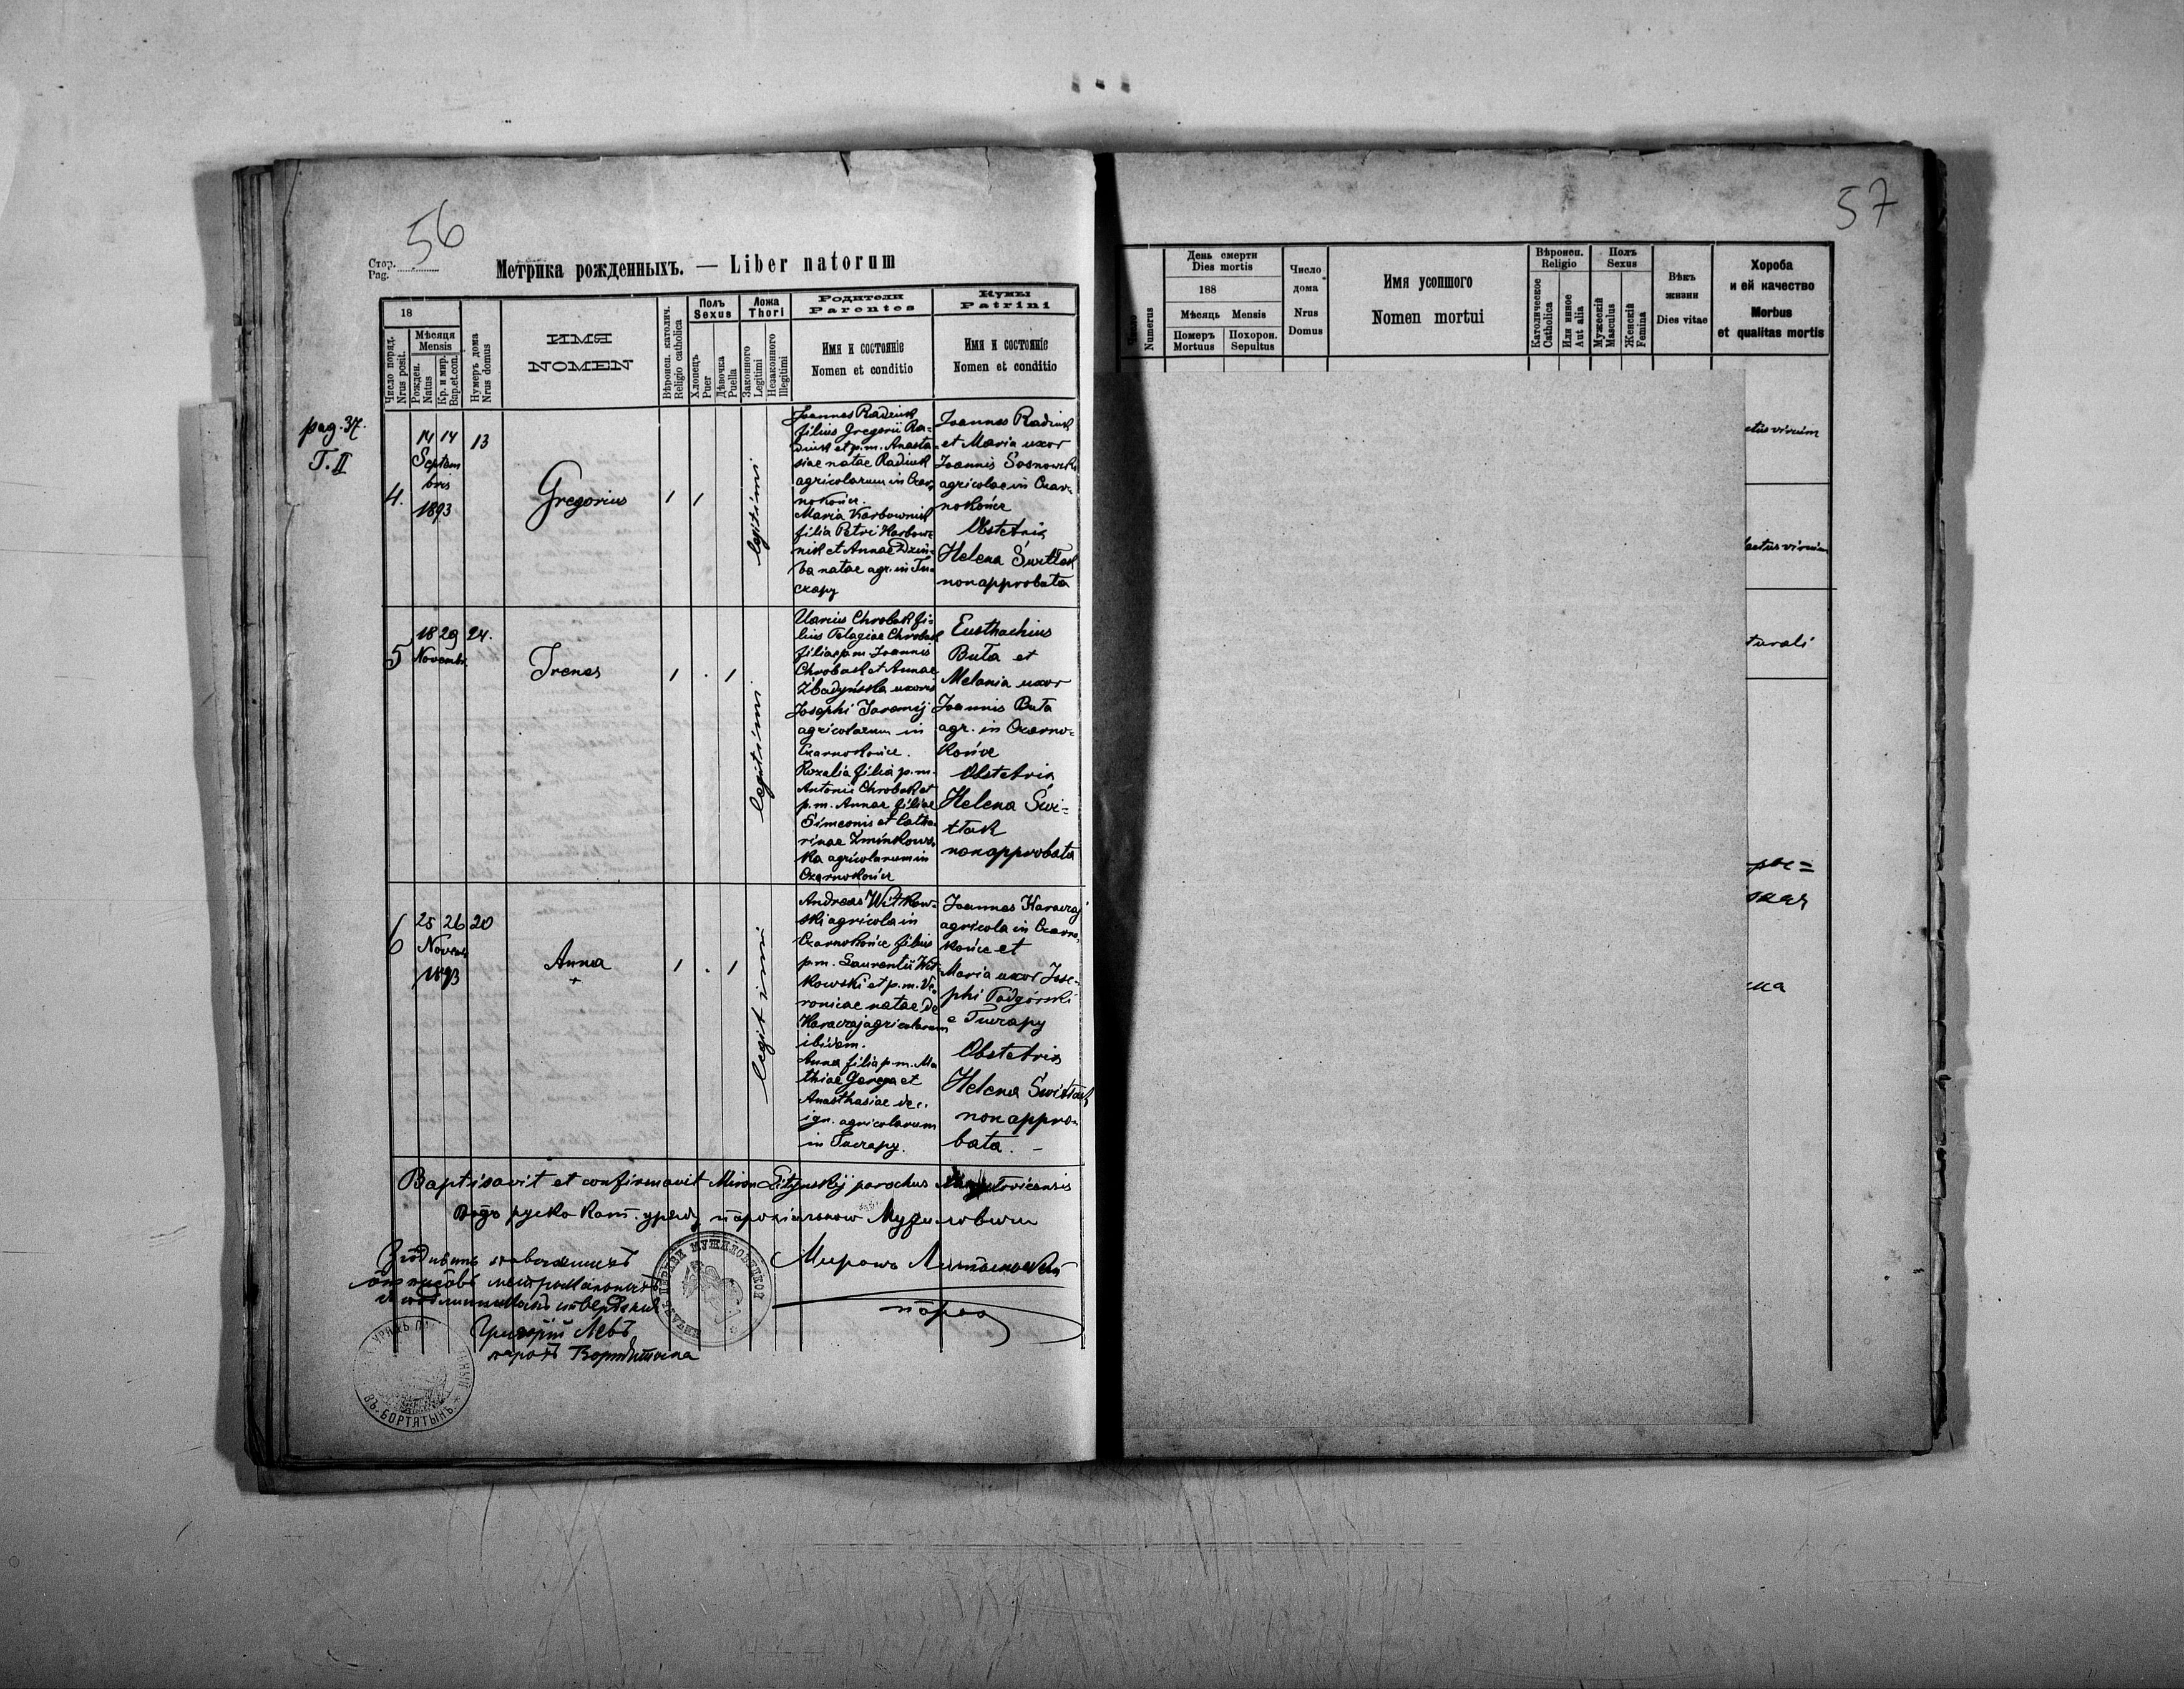 56
Стор.
Pag.
Метрика рожденныхъ. — Liber natorum
18
Число поряд.
Nrus posit.
Мѣсяця
Mensis
Рожден.
Natus
Кр. и мир.
Bap. et con.
Нумеръ дома
Nrus domus
ИМЯ
NOMEN
Вѣроисп. католич.
Religio catholica
Полъ
Sexus
Хлопецъ
Puer
Дѣвочка
Puella
Ложа
Thori
Законного
Legitimi
Незаконного
Illegitimi
Родители
Parentes
Имя и состояніе
Nomen et conditio
Кумы
Patrini
Имя и состояніе
Nomen et conditio
pag. 37.
T. II
4.
14 14
Septem
bris
1893
13
Gregorius
1
1
legitimi
Joannes Radiuk
filius Gregorii Ra=
diuk et p.m. Anasta
siae natae Radiuk
agricolarum in Czar
nokońce.
Maria Karbownik
filia Petri Karbow=
nik et Annae Dziu=
ba natae agr. in Tu=
czapy
Joannes Radiuk
et Maria uxor
Joannis Sosnowski
agricolae in Czar=
nokońce
Obstetrix
Helena Świtłak
non approbata
5
18 29
Novembr.
24.
Irenes
1 . 1
legitimi
Chrobak fi=
lius Pelagiae Chrobak
filiae p.m. Joannis
Chrobak et Annae
Zbadyńska uxoris
Josephi Jaremij
agricolarum in
Czarnokońce.
Rozalia filia p.m.
Antonii Chrobak et
p.m. Annae filiae
Simeonis et Catha
rinae Zmińkows
ka agricolarum in
Czarnokońce
Eusthachius
Buta et
Melania uxor
Joannis Buta
agr. in Czarno=
końce
Obstetrix
Helena Świ=
tłak
non approbata
6
25 26
Novem
1893
20
Anna
+
1 . 1
legitimi
Andreas Witkow=
ski agricola in
Czarnokońce filius
p.m. Laurentii Wit=
kowski et p.m. Ve=
ronicae natae de
Karaczaj agricolarum
ibidem.
Anna filia p.m. Ma
thiae Gerega et
Anasthasiae de c.
ign. agricolarum
in Tuczapy.
Joannes Karaczaj
agricola in Czarno=
końce et
Maria uxor Jose=
phi Podgórski
e Tuczapy
Obstetrix
Helena Świtłak
non appro=
bata. —
Baptisavit et confirmavit Miron Litynskij parochus
Мужиловичи
парох
Григорій Левъ
парохъ Бортятина
ВЪ БОРТЯТЫНѢ
57
Число
Numerus
День смерти
Dies mortis
188
Мѣсяць Mensis
Померъ
Mortuus
Похорон.
Sepultus
Число
дома
Nrus
Domus
Имя усопшого
Nomen mortui
Вѣроисп.
Religio
Католическое
Catholica
Или инное
Aut alia
Полъ
Sexus
Мужескій
Masculus
Женскій
Femina
Вѣкъ
жизни
Dies vitae
Хороба
и ей качество
Morbus
et qualitas mortis
ctus virium
fectus virium
turali